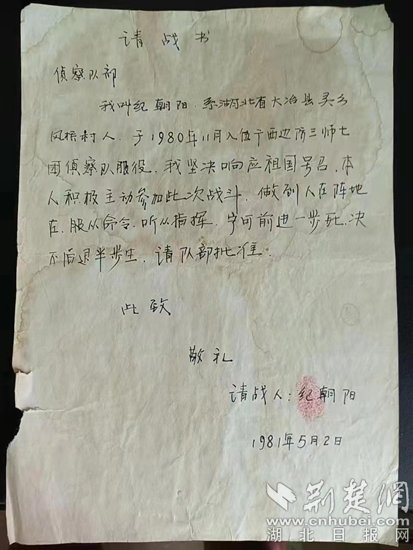 请战书
侦察队部
我叫纪朝阳,系湖北省大冶县灵乡
凤梧村人,于1980年11月入伍广西边防三师七
团侦察队服役,我坚决响应祖国号召,本
人积极主动参加此次战斗,做到人在阵地
在,服从命令,听从指挥,宁可前进一步死,决
不后退半步生,请队部批准。
此致
敬礼
请战人:纪朝阳
1981年5月2日
荆楚网
www.cnhubei.com
湖北日报网